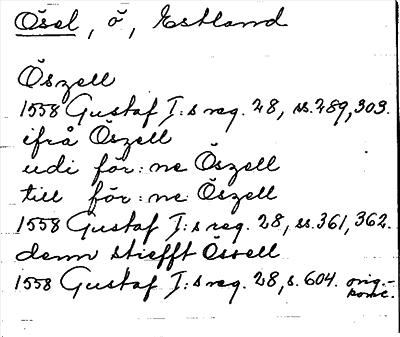 Ösel, ö, Estland
Öszell
1558 Gustaf I:s reg. 28, ss. 289, 303.
ifrå Öszell
udi för:ne Öszell
till för:ne Öszell
1558 Gustaf I:s reg. 28, ss. 361, 362.
denn stiefft Össell
1558 Gustaf I:s reg. 28, s. 604. orig.-
konc.